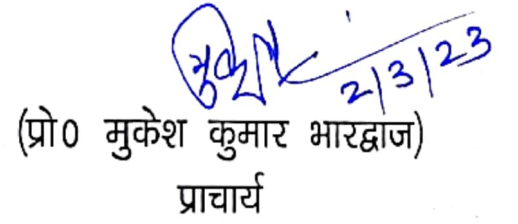 मुकेश
2/3/23
(प्रो० मुकेश कुमार भारद्वाज)
प्राचार्य